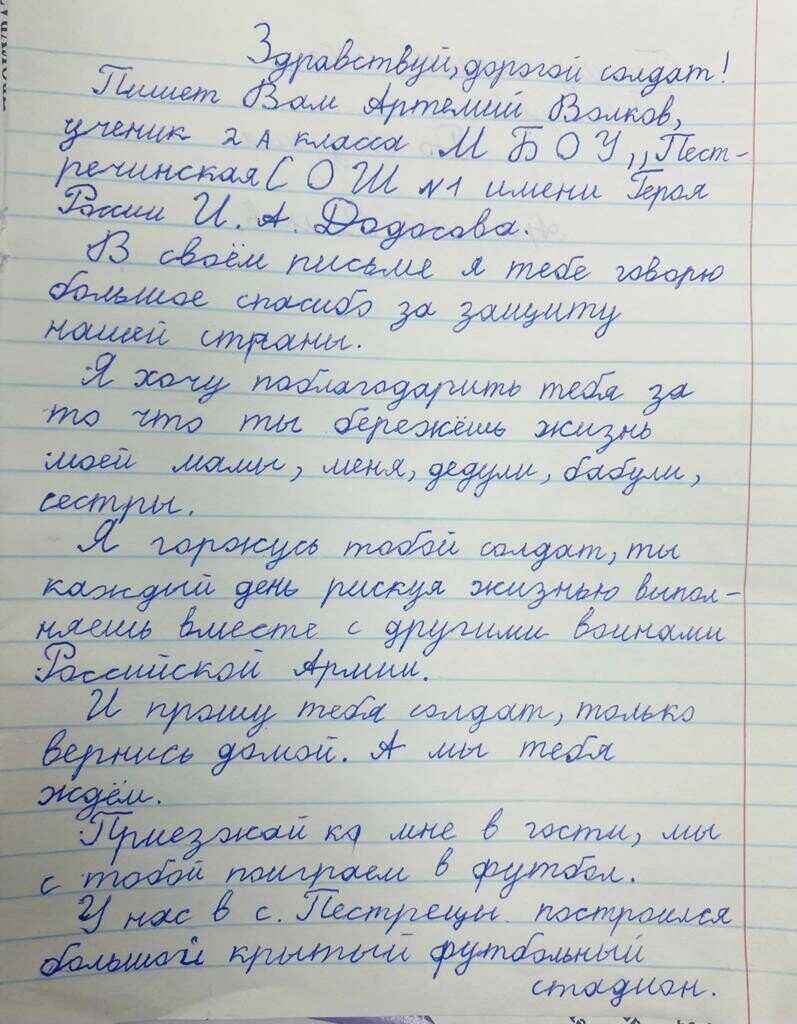 Здравствуй, дорогой солдат!
Пишет Вам Артемий Волков,
ученик 2 А класса М Б О У ,, Пест-
речинская С О Ш №1 имени Героя
России И. А. Додосова.
В своём письме я тебе говорю
большое спасибо за защиту
нашей страны.
Я хочу поблагодарить тебя за
то что ты бережёшь жизнь
моей мамы, меня, дедули, бабули,
сестры.
Я горжусь тобой солдат, ты
каждый день рискуя жизнью выпол-
няешь вместе с другими воинами
Российской Армии.
И прошу тебя солдат, только
вернись домой. А мы тебя
ждём.
Приезжай ко мне в гости, мы
с тобой поиграем в футбол.
У нас в с. Пестрецы построился
большой крытый футбольный
стадион.